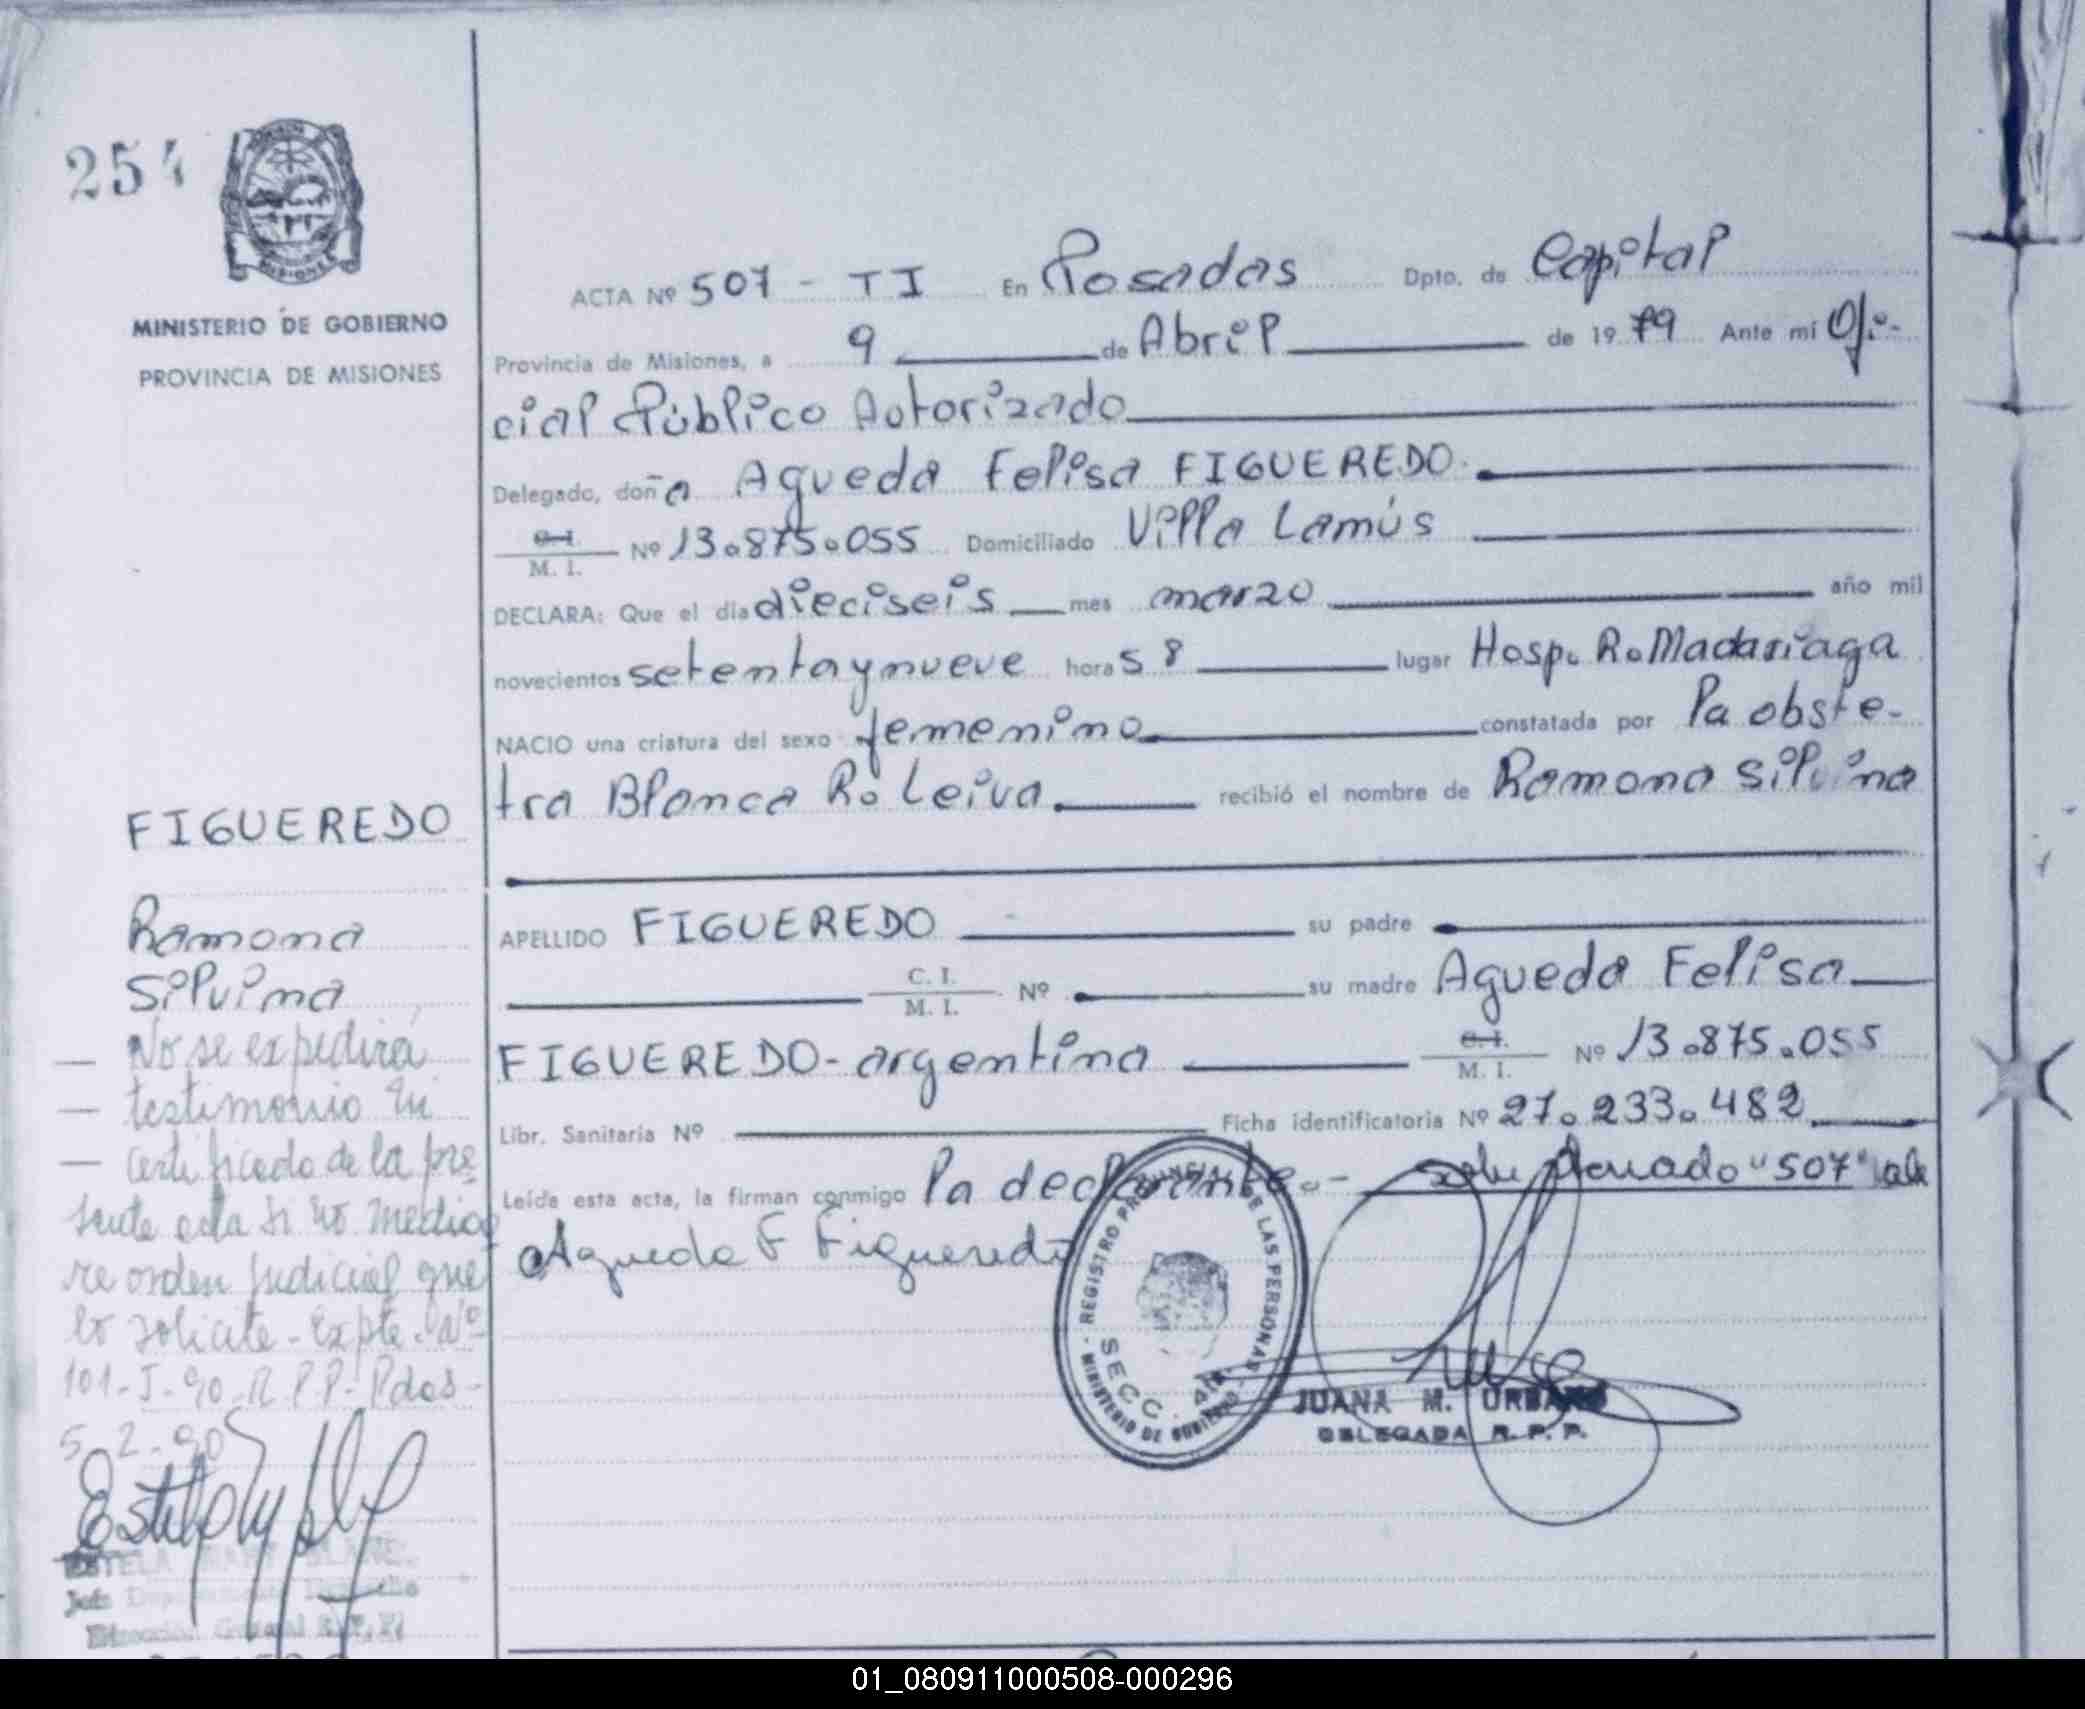 254
MISIONES
MINISTERIO DE GOBIERNO
PROVINCIA DE MISIONES
FIGUEREDO
Ramona
Silvina
— No se expedirá
— testimonio ni
— certificado de la pre
sente acta si no media
re orden judicial que
lo solicite - Expte. Nº
101-I-90-R.P.P.-Pdas-
5-2-90
ESTELA MARY
Jefe Departamento Despacho
Dirección General R.P.P.
ACTA Nº 507 - TI En Posadas Dpto. de Capital
Provincia de Misiones, a 9 de Abril de 1979 Ante mi Ofi-
cial Público Autorizado
Delegado, doña Agueda Felisa FIGUEREDO
C.I. M. I. Nº 13.875.055 Domiciliado Villa Lanús
DECLARA: Que el día dieciseis mes marzo año mil
novecientos setenta y nueve horas 8 lugar Hosp. R. Madariaga
NACIO una criatura del sexo femenino constatada por la obste-
tra Blanca R. Leiva recibió el nombre de Ramona Silvina
APELLIDO FIGUEREDO su padre
C. I. M. I. Nº su madre Agueda Felisa
FIGUEREDO - argentina C. I. M. I. Nº 13.875.055
Libr. Sanitaria Nº Ficha identificatoria Nº 27.233.482
Leída esta acta, la firman conmigo la declarante.- sobre borrado "507" vale
Agueda F Figueredo
REGISTRO PROVINCIAL DE LAS PERSONAS - MINISTERIO DE GOBIERNO -
SECC. 4ta.
JUANA M. URBANO
DELEGADA R. P. P.
01_080911000508-000296